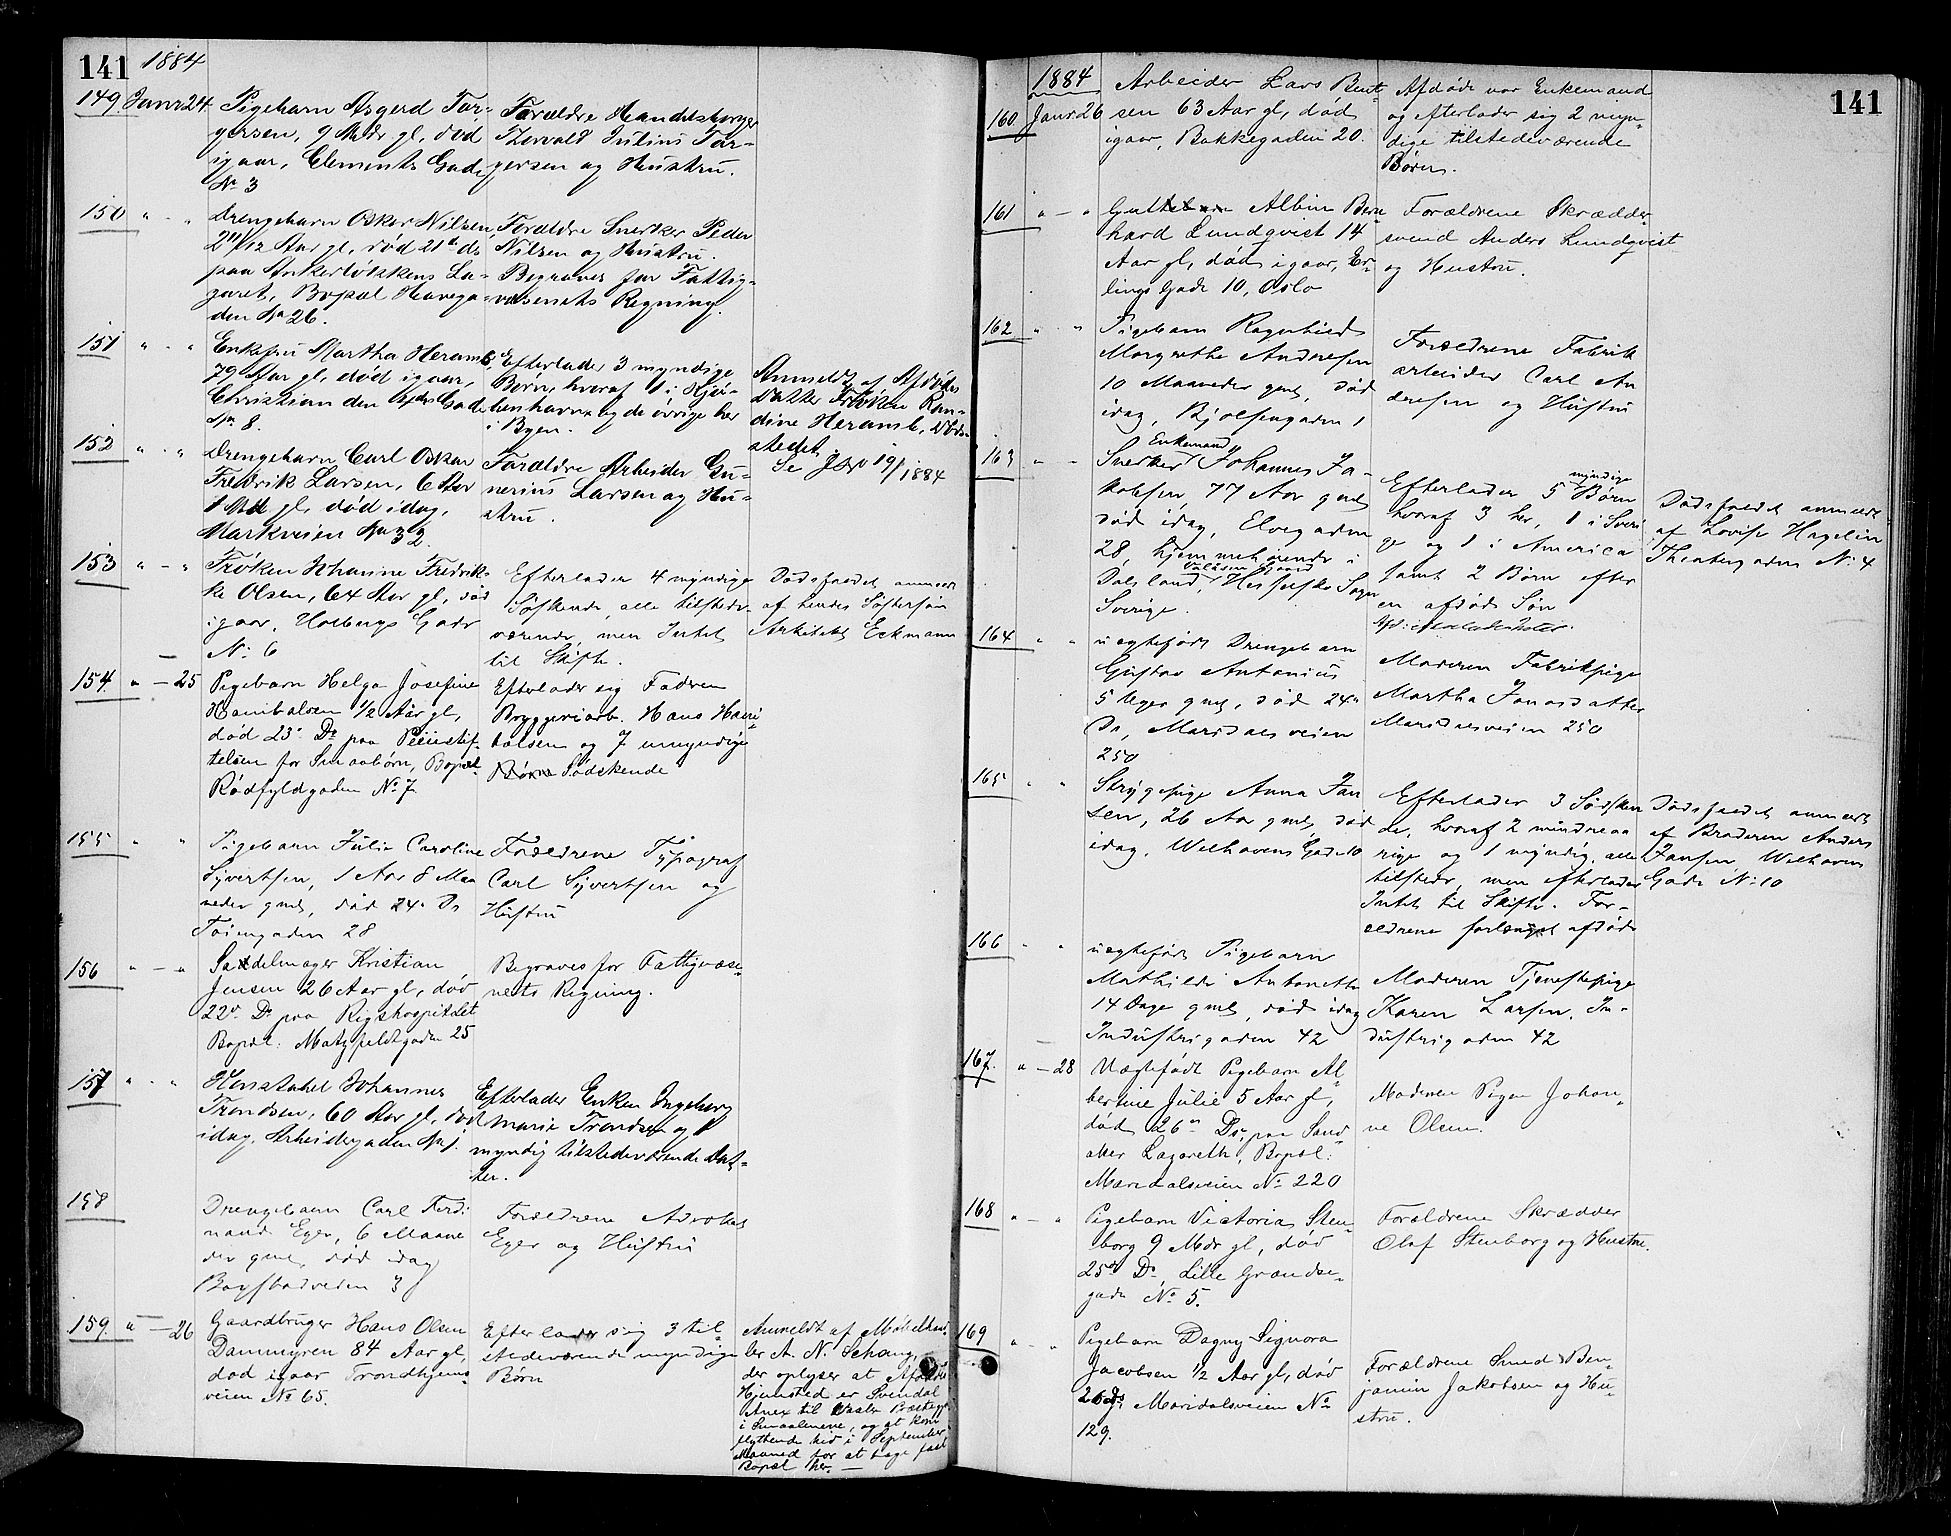 141 1884
149. Januar 24. Pigebarn Asgerd Tor-
gersen, 9 Mdr gl, død
igaar, Clements Gade
No 3
Forældre Handelsborger
Thorvald Julius Tor-
gersen og Hustru.
150 " - " Drengebarn Oskar Nilsen
2 11/12 Aar gl, død 21de ds
paa Ankerløkkens La-
garet, Bopæl Havega-
den No 26.
Forældre Snerker Peder
Nilsen og Hustru.
Begraves for Fattig-
væsenets Regning.
151 " - " Enkefru Martha Heramb,
79 Aar gl, død igaar,
Christian den 4des Gade
No 8.
Efterlader 3 myndige
Børn, hvoraf 1 i Kjø-
benhavn og de øvrige her
i Byen.
Anmeldt af Afdødes
Datter Frøken Ran-
dine Heramb, Døds-
stedet
Se 19/ 1884
152 " - " Drengebarn Carl Oskar
Fredrik Larsen, 6 Aar
1 Md gl, død idag,
Markveien No 32.
Forældre Arbeider Gu-
nerius Larsen og Hu-
stru.
153 " - " Frøken Johanne Fredrik-
ke Olsen, 64 Aar gl, død
igaar, Holbergs Gade
No 6
Efterlader 4 myndige
Søskende, alle tilstede-
værende, men Intet
til Skifte.
Dødsfaldet anmeldt
af hendes Søstersøn
Arkitekt Eckmann
154. " - 25 Pigebarn Helga Josefine
Hanibalsen 1/2 Aar gl,
død 23de Ds paa Pleiestif-
telsen for Smaabørn, Bopæl
Rødfyldgaden No 7.
Efterlader sig Faderen
Bryggeriarb. Hans Hani-
balsen og 7 umyndige
Børn Sødskende
155 " " Pigebarn Julie Caroline
Syvertsen, 1 Aar 8 Maa
neder gml, død 24de Ds
Tøiengaden 28
Forældrene Typograf
Carl Syvertsen og
Hustru
156 " - " Sadelmager Kristian
Jensen 26 Aar gl, død
22de Ds paa Rigshospitalet
Bopæl: Motzfeldtgaden 25
Begraves for Fattigvæse-
nets Regning.
157 " - " Konstabel Johannes
Trondsen, 60 Aar gl, død
idag, Arbeidergaden No 1.
Efterlader Enken Ingeborg
Marie Trondsen og 1
myndig tilstedeværende Dat-
ter.
158 Drengebarn Carl Ferdi
nand Eger, 6 Maane
der gml, død idag
Bogstadveien 3
Forældrene Advokat
Eger og Hustru
159. " - 26 Gaardbruger Hans Olsen
Dammyren 84 Aar gl,
død igaar Trondhjems-
veien No 65.
Efterlader sig 3 til-
stedeværende myndige
Børn
Anmeldt af Møbelhand-
ler A. N. Schang,
der oplyser at Afdødes
Hjemsted er Svendal
Anex til Vaaler Præstegj.
i Smaalenene, og at kom
flyttende hid i September
Maaned for at tage fast
Bopæl her. —
141
1884
160 Januar 26 Arbeider Lars Bent-
sen 63 Aar gl, død
igaar, Bakkegaden 20.
Afdøde var Enkemand
og efterlader sig 2 myn-
dige tilstedeværende
Børn.
161 " - " Gut Albin Bern
hard Lundqvist 14
Aar gl, død igaar, Er-
lings Gade 10, Oslo
Forældrene Skrædder-
svend Anders Lundqvist
og Hustru.
162 " - " Pigebarn Ragnhild
Margrethe Andresen
10 Maaneder gml, død
idag, Bjølsengaden 1
Forældrene Fabrik
arbeider Carl An
dresen og Hustru
163 " - Enkemand
Snerker Johannes Ja-
kobsen, 77 Aar gml,
død idag, Elvegaden
28, hjemmehørende i
Dalsland, Sogn
Sverige.
Efterlader 5 myndige Børn
hvoraf 3 her, 1 i Sveri
ge og 1 i America
samt 2 Børn efter
en afdød Søn
Dødsfaldet anmeldt
af Lovise Hagelin
Theatergaden No 4
164 " " uægtefødt Drengebarn
Gustav Antonius
5 Uger gml, død 24de
Ds, Maridalsveien
250
Moderen Fabrikpige
Martha Jonasdatter
Maridalsveien 250
165 " " Strygepige Anna Jan
sen, 26 Aar gml, død
idag, Welhavens Gade 10
Efterlader 3 Sødsken
de, hvoraf 2 mindreaa
rige og 1 myndig, alle
tilstede, men efterlader
Intet til Skifte. For-
ældrene forlængst afdøde
Dødsfaldet anmeldt
af Broderen Anders
Jansen, Welhavens
Gade No 10
166 " " uægtefødt Pigebarn
Mathilde Antonette
14 Dage gml, død idag
Industrigaden 42
Moderen Tjenestepige
Karen Larsen, In-
dustrigaden 42
167. " - 28 Uægtefødt Pigebarn Al-
bertine Julie 5 Aar gl,
død 26de Ds, paa Sand-
aker Lazareth, Bopæl:
Maridalsveien No 220
Moderen Pigen Johan-
ne Olsen.
168 " - " Pigebarn Victoria Sten-
borg 9 Mdr gl, død
25de Ds, Lille Grændse-
gade No 5.
Forældrene Skrædder
Olaf Stenborg og Hustru.
169 " - " Pigebarn Dagny Signora
Jacobsen 1/2 Aar gl, død
26 Ds. Maridalsveien No
129.
Forældrene Smed Ben-
jamin Jakobsen og Hu-
stru.